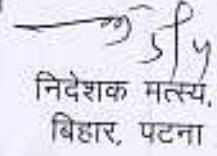 निदेशक मत्स्य,
बिहार, पटना